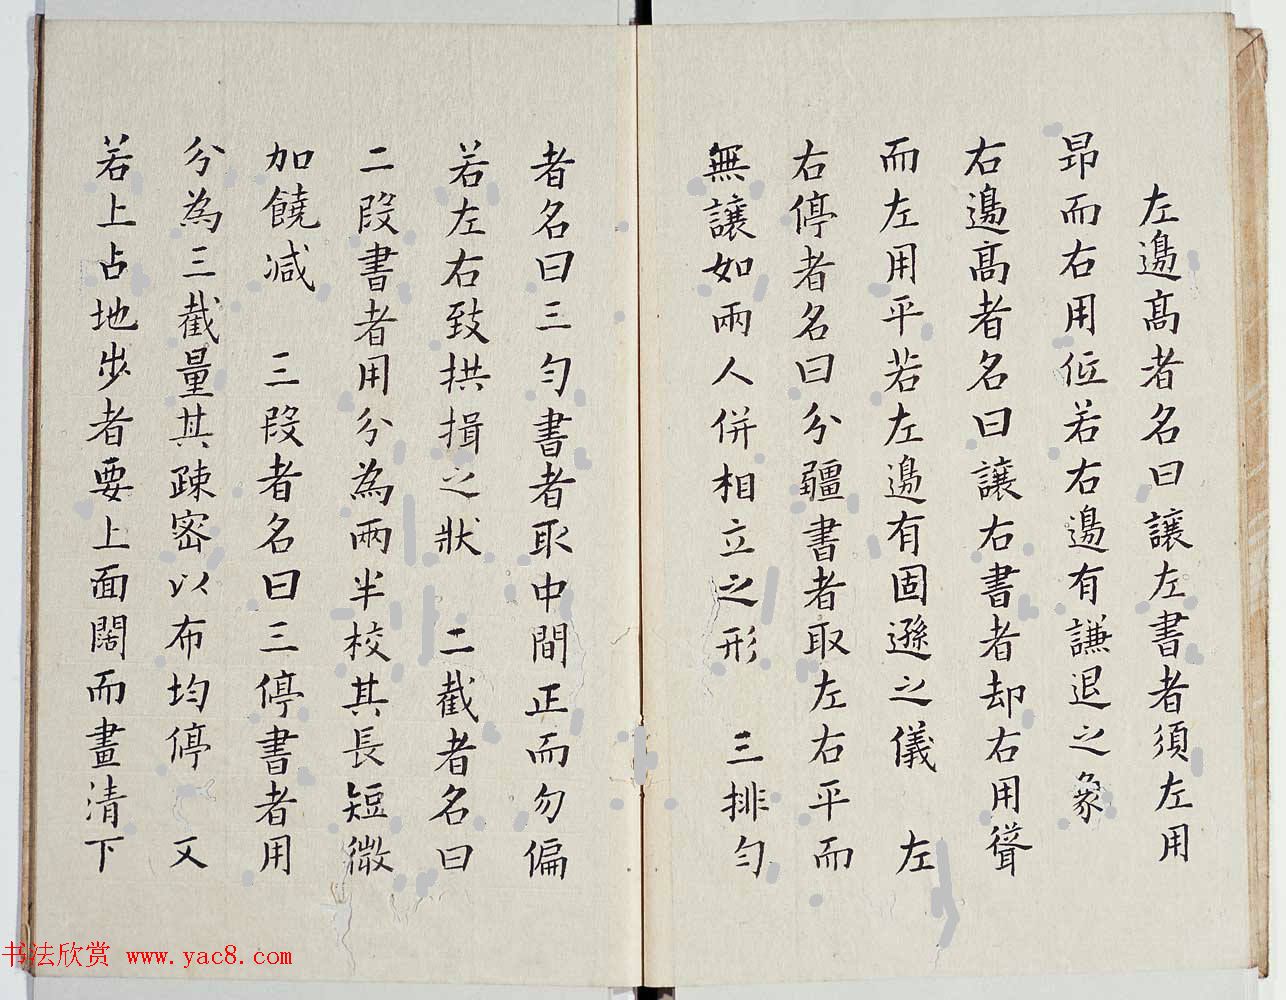 左邊高者名曰讓左書者須左用
昻而右用低若右邊有謙退之象
右邊髙者名曰讓右書者却右用聳
而左用平若左邊有固遜之儀　左
右停者名曰分疆書者取左右平而
無讓如兩人併相立之形　三排勻
者名曰三勻書者取中間正而勿偏
若左右致拱揖之狀　二截者名曰
二段書者用分為兩半校其長短微
加饒减　三段者名曰三停書者用
分為三截量其疎密以布均停　又
若上占地步者要上面闊而畫清下
书法欣赏 www.yac8.com